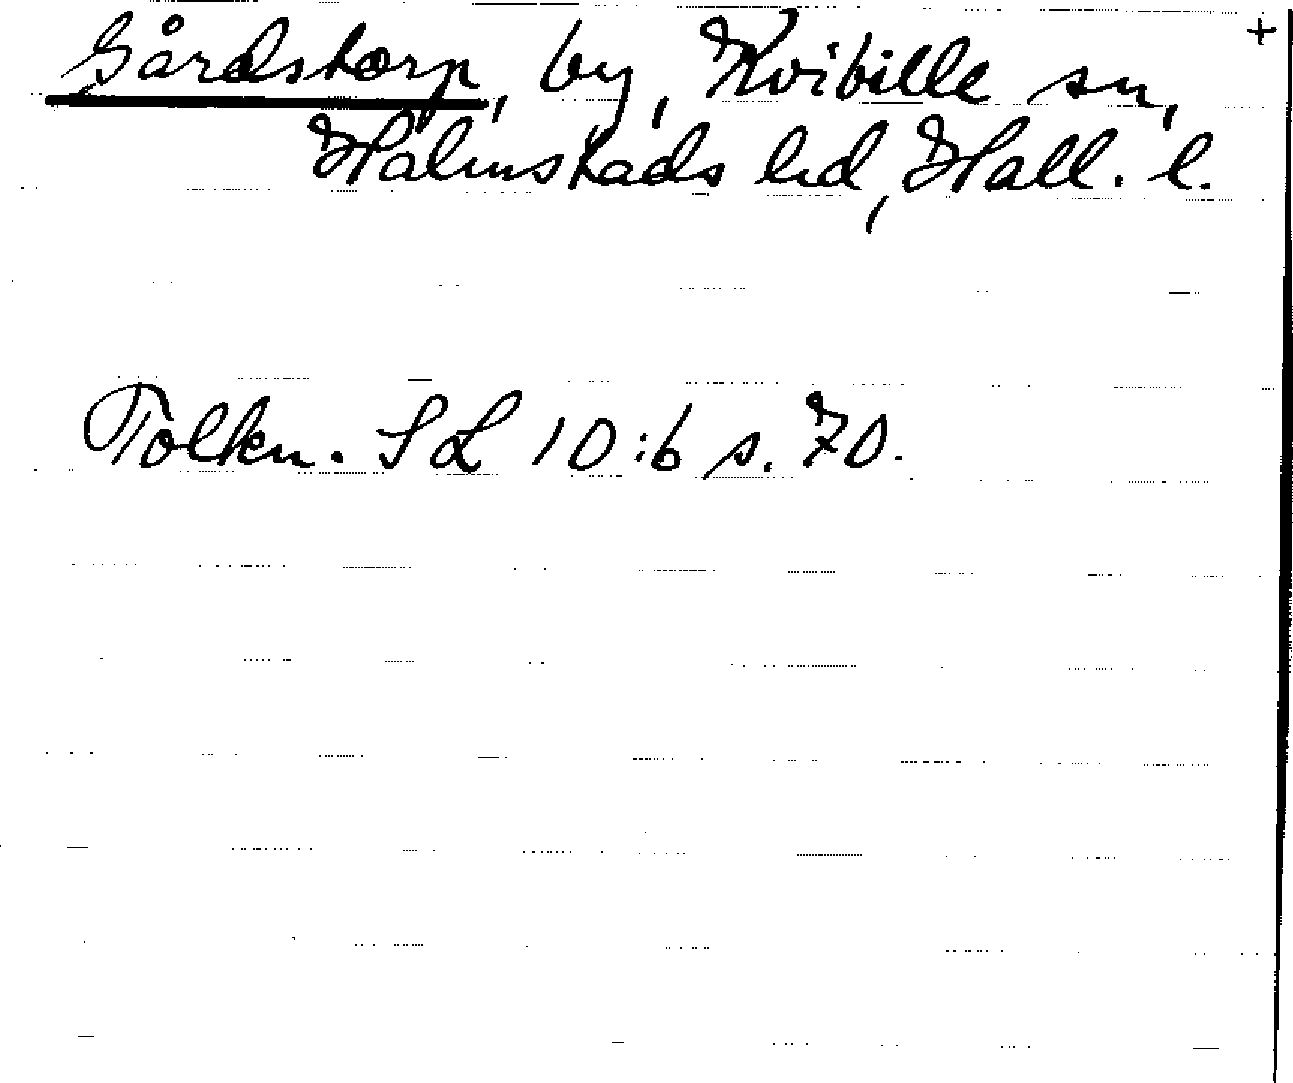 +
Gårdstorp, by, Kvibille sn,
Halmstads hd, Hall. l.
Tolkn. SL 10:6 s. 70.